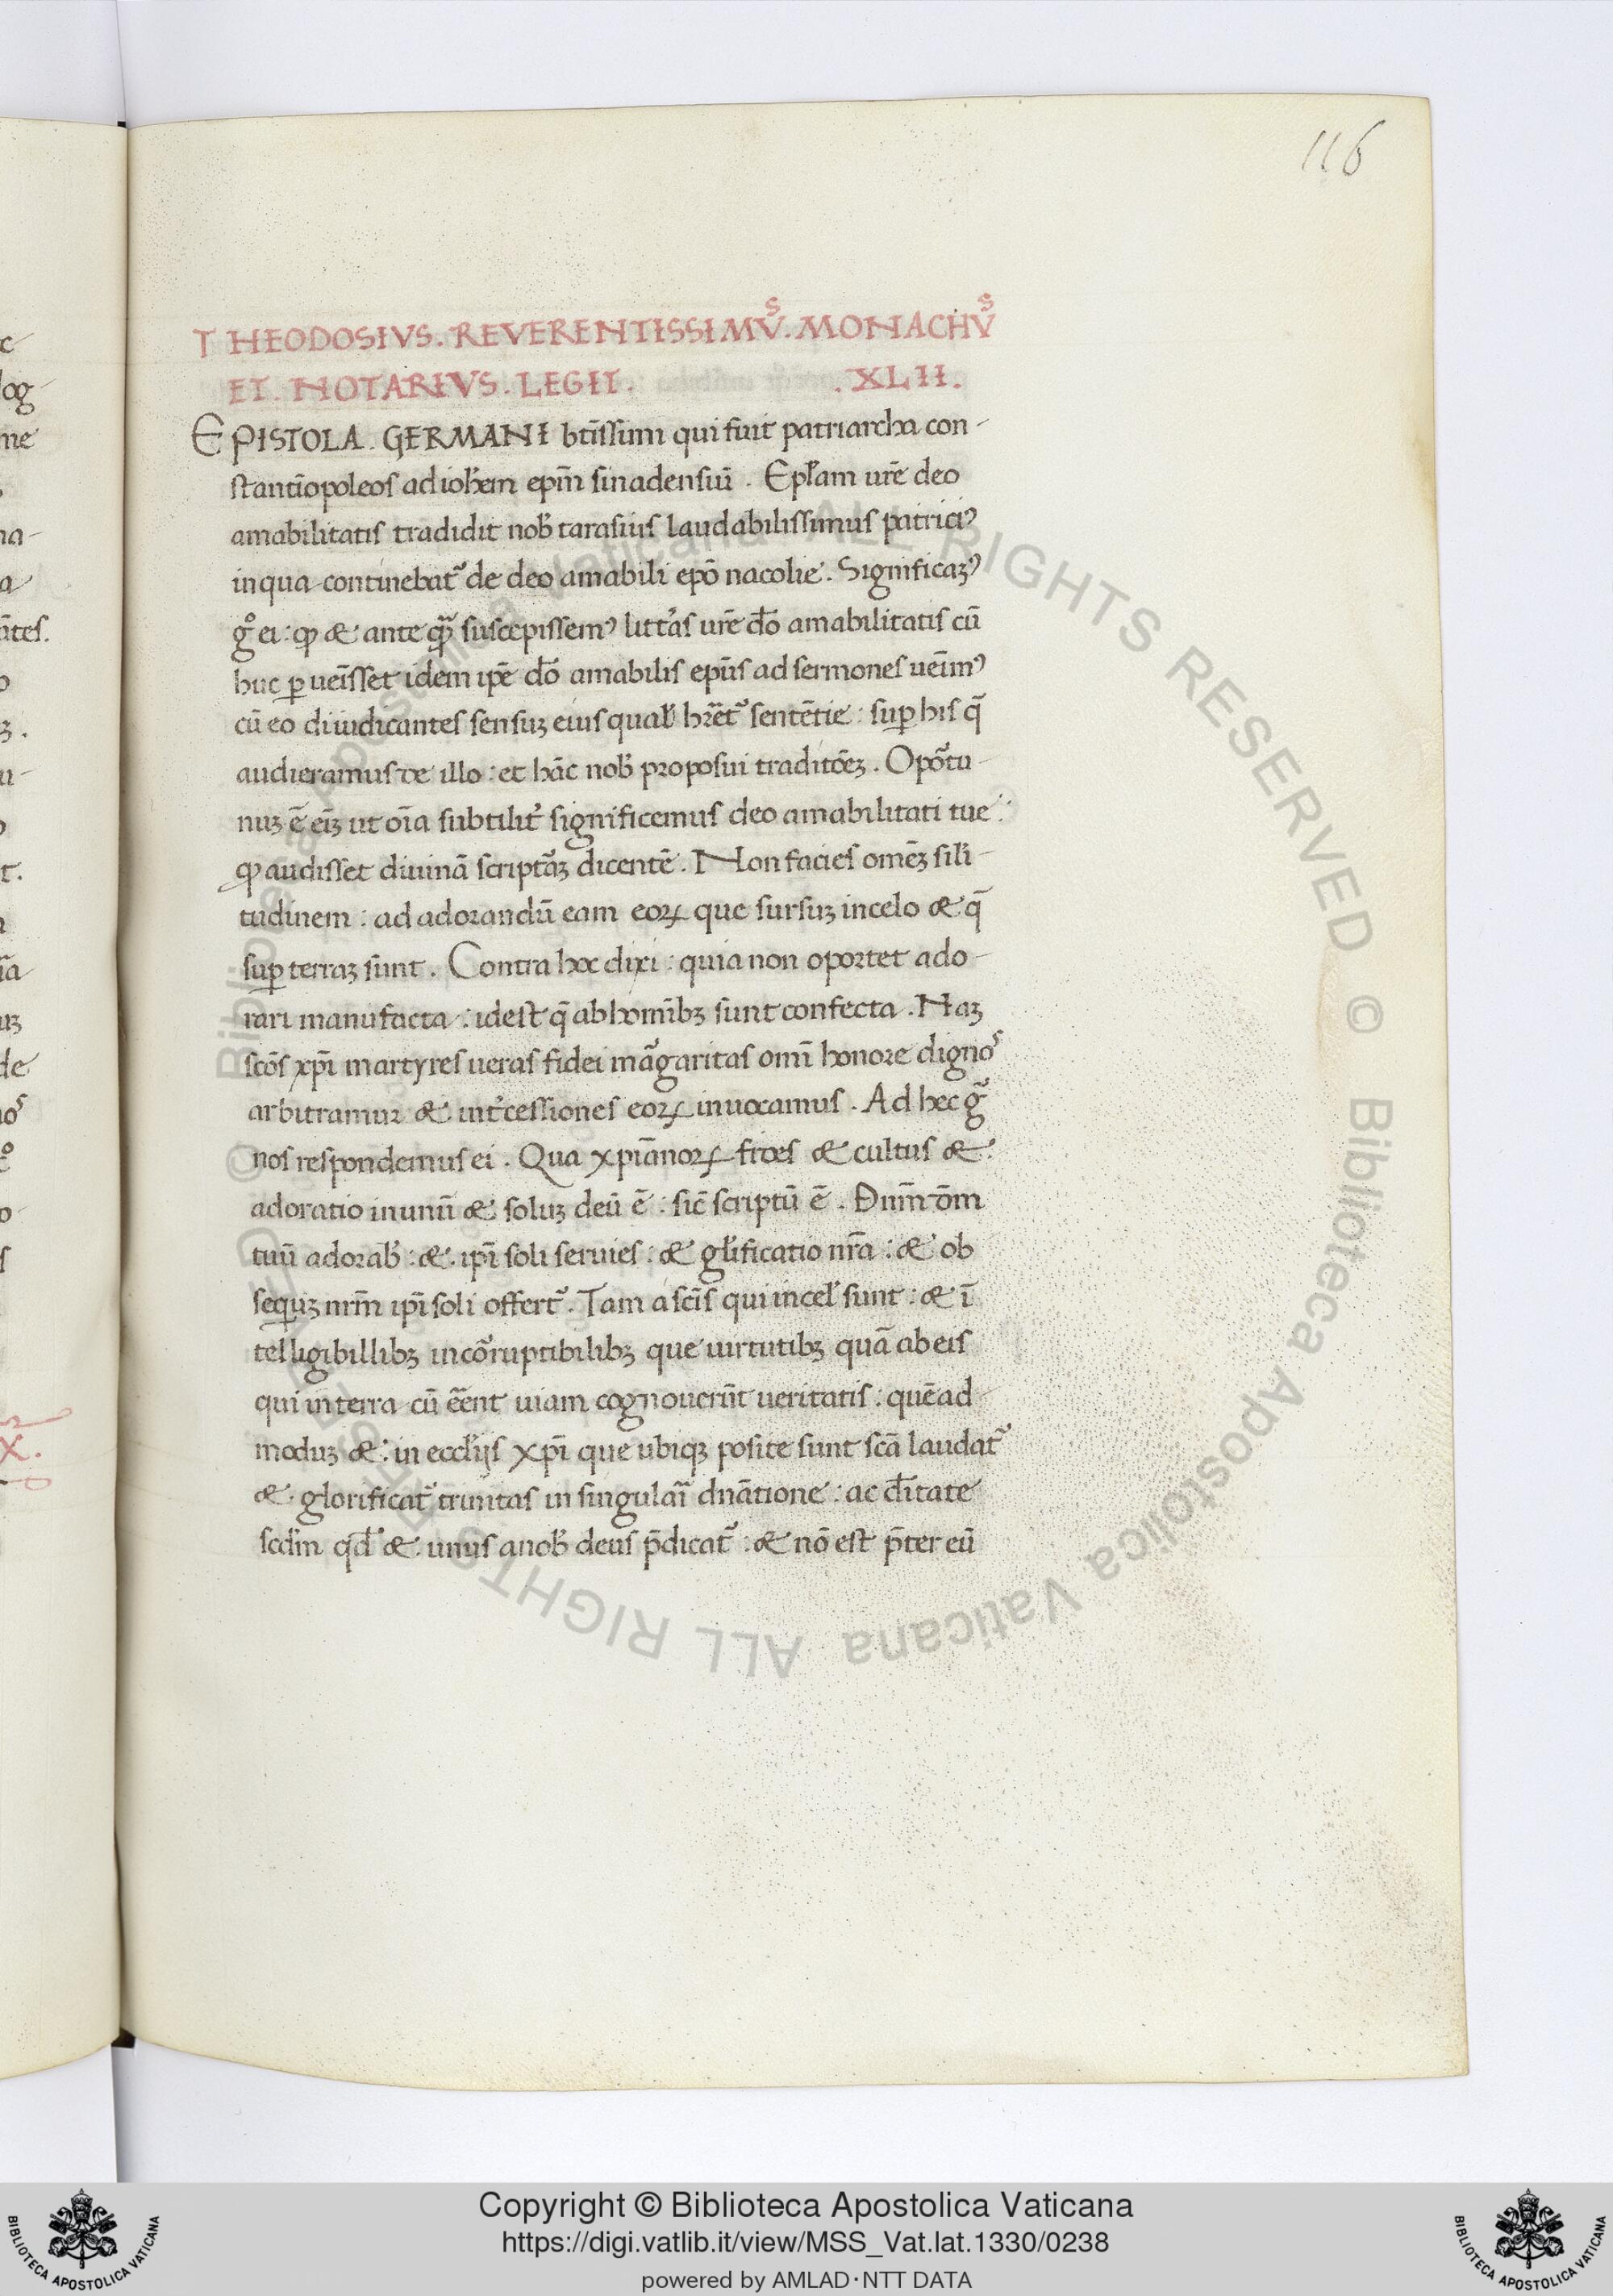 116
THEODOSIVS. REVERENTISSIMVˢ. MONACHVˢ
ET. NOTARIVS. LEGIT. .XLII.
EPISTOLA. GERMANI btissum qui fuit patriarcha con-
stantiopoleos ad ioħem epm̄ sinadensiū. Epl'am ur̄e deo
amabilitatis tradidit nob' tarasius laudabilissimus patriciꝰ
in qua continebat᷑ de deo amabili epō nacolie. Significaꝫꝰ
gͦ ei: ꝙ & ante qꝫ̃ suscepissemꝰ litt'as ur̄e dō amabilitatis cū
huc ꝑueīsset idem ip̄e dō amabilis ep̄us ad sermones ueīmꝰ
cū eo diiudicantes sensuꝫ eius qual' hr̄et᷑ sentētie: suꝑ his q̄
audieramus de illo: et hāc nob' proposui traditōeꝫ. Opōtu-
nuꝫ ē eīꝫ ut oīa subtilit' significemus deo amabilitati tue:
ꝙ audisset diuinā scriptāꝫ dicentē. Non facies omēꝫ sili-
tudinem: ad adorandū eam eoꝝ que sursuꝫ in celo & q̄
suꝑ terraꝫ sunt. Contra hoc dixi: quia non oportet ado-
rari manufacta: idest q̄ ab hominībꝫ sunt confecta. Naꝫ
scōs xp̄i martyres ueras fidei māgaritas omī honore dignoˢ
arbitramur & int'cessiones eoꝝ inuocamus. Ad hec gͣ
nos respondemus ei. Qua xpianoꝝ fides & cultus &
adoratio in unū & soluꝫ deū ē: sic̄ scriptū ē. Dnm̄ dm̄
tuū adorab': & ip̄i soli seruies: & gl'ificatio nr̄a: & ob
sequꝫ nrm̄ ip̄i soli offert᷑. Tam a sc̄is qui in cel' sunt: & ī
telligibillibꝫ incōruptibilibꝫ que uirtutibꝫ quā ab eis
qui in terra cū eēnt uiam cognouerūt ueritatis: quēad
moduꝫ &: in eccl'ijs Xp̄i que ubiqꝫ posite sunt scā laudat᷑
& glorificat᷑ trinitas in singulaī dn̄atione: ac đitate
scđm qđ &: unus a nob' deus p̄dicat᷑: & nō est p̄ter eū
Copyright © Biblioteca Apostolica Vaticana
https://digi.vatlib.it/view/MSS_Vat.lat.1330/0238
powered by AMLAD·NTT DATA